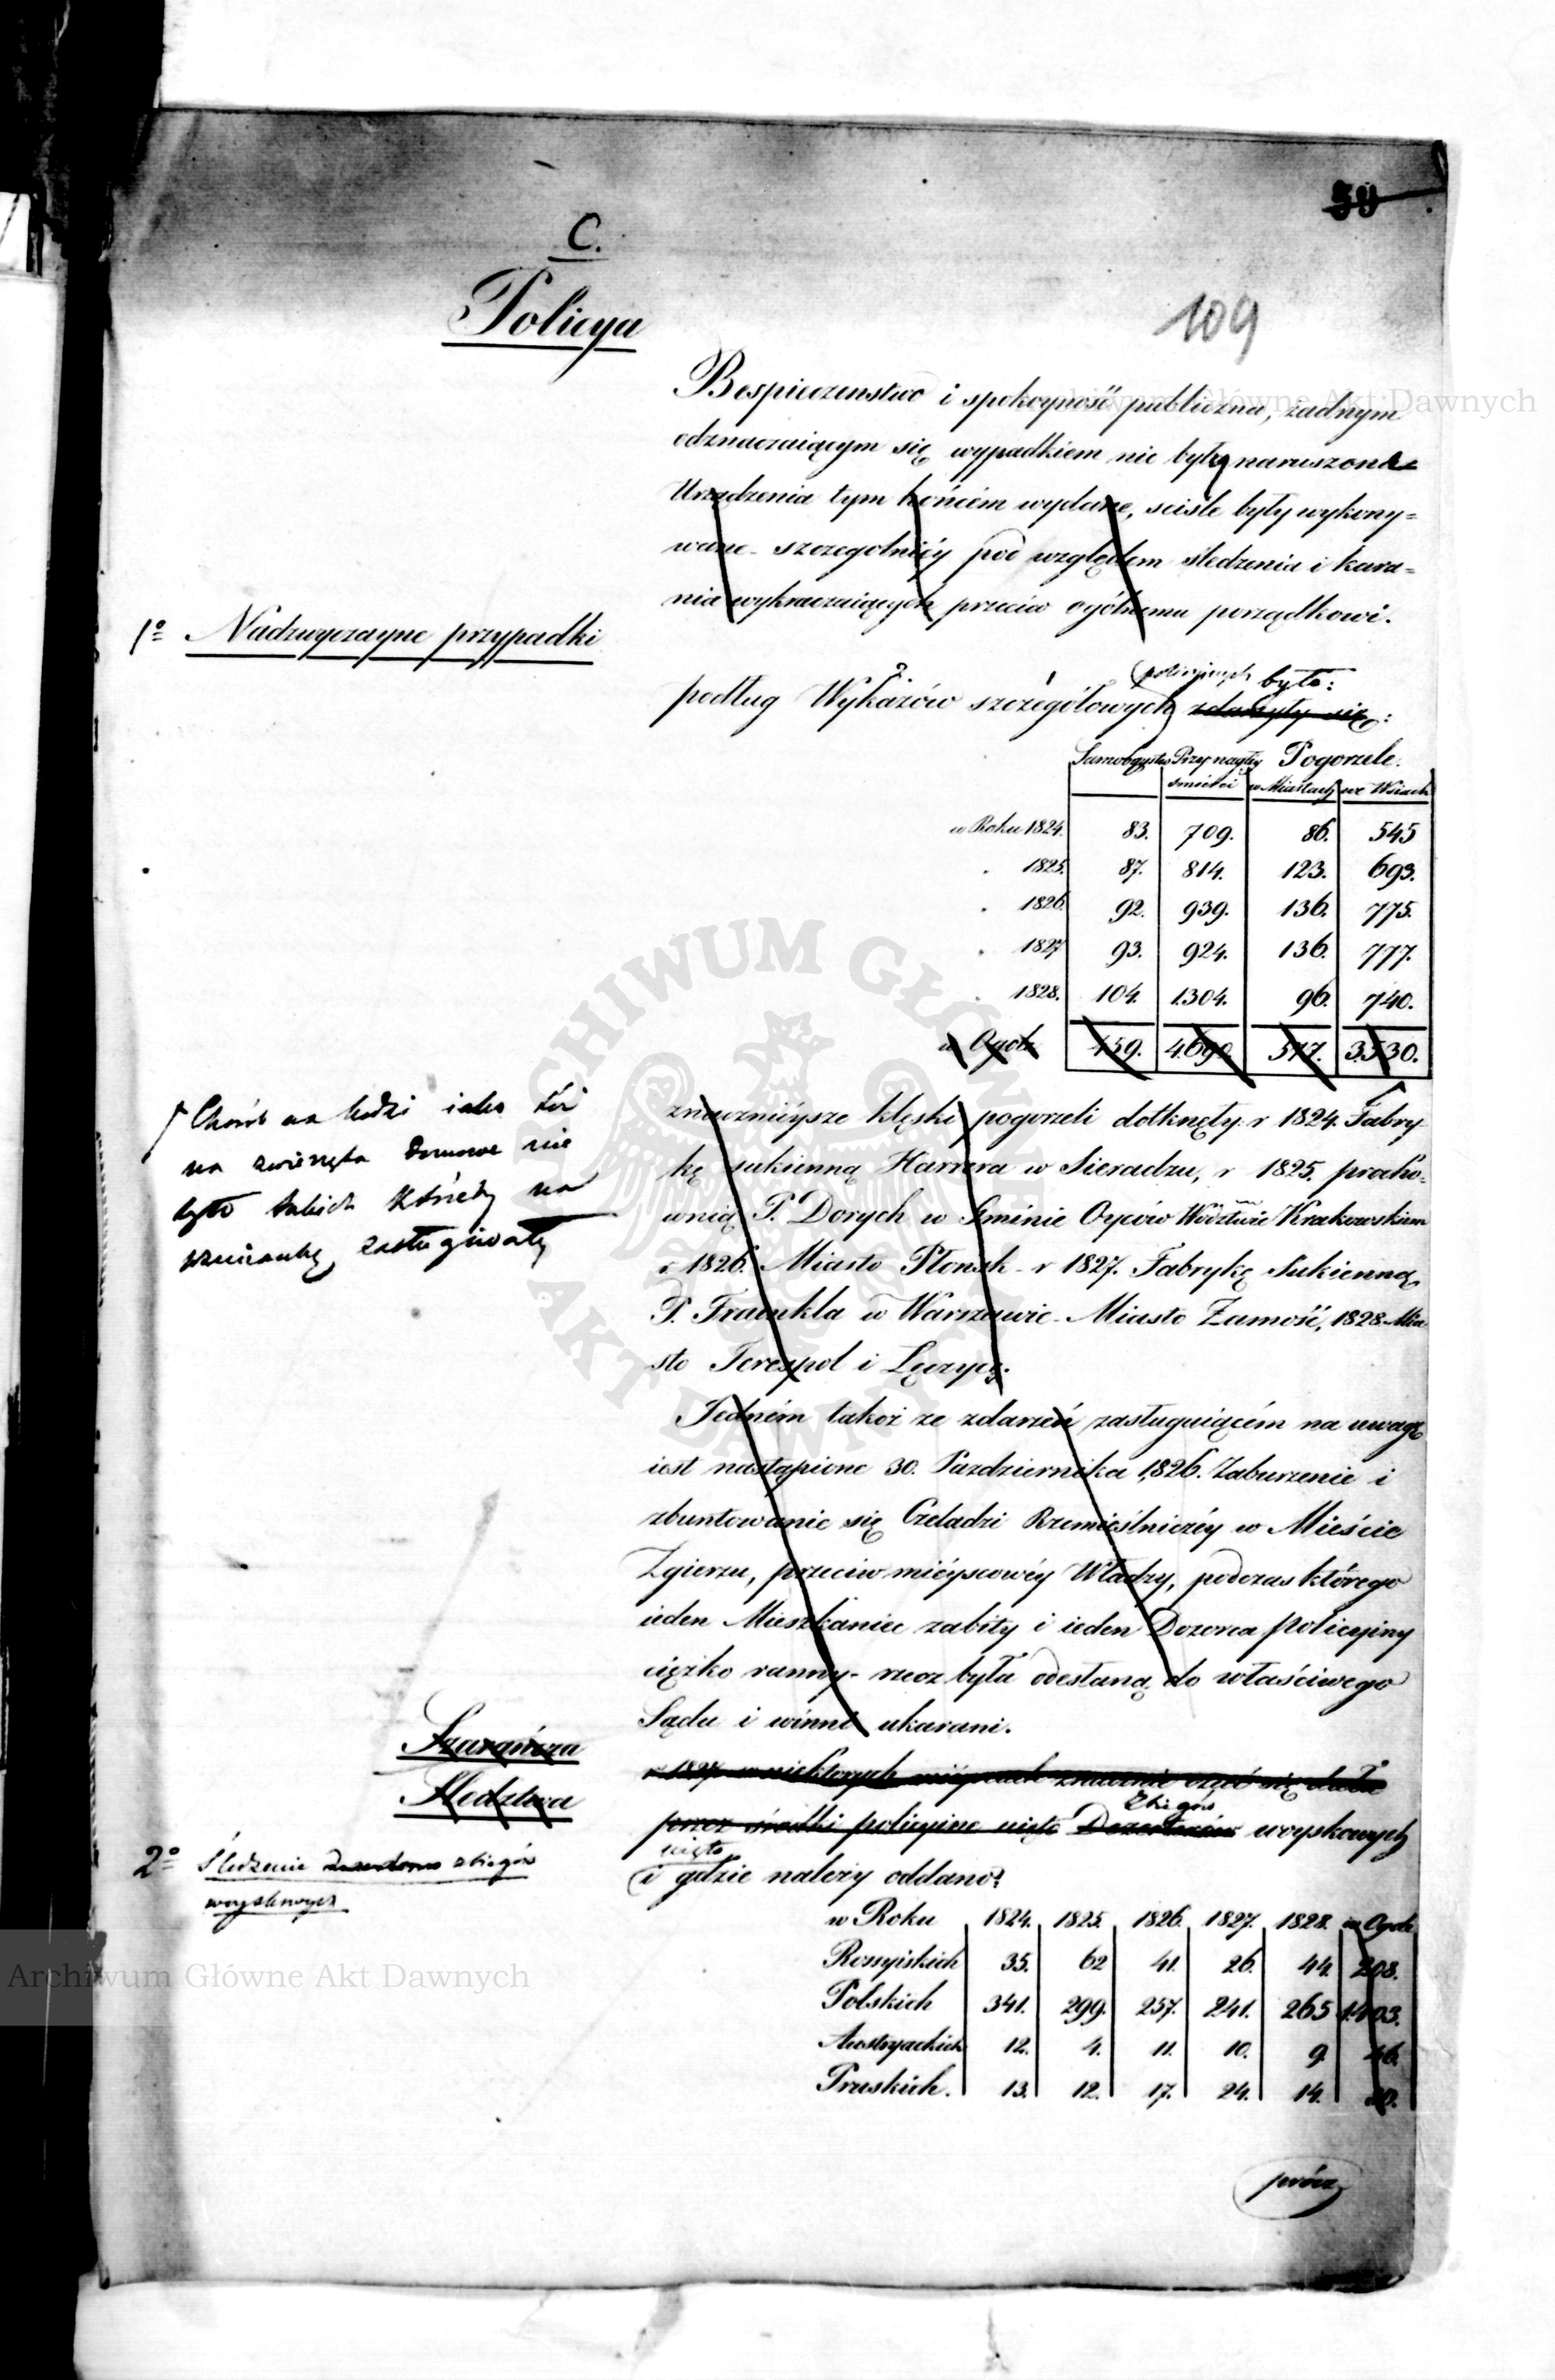 59
C.
Policya
109
Bespieczenstwo i spokoyność publiczna, żadnym
odznaczaiącym się wypadkiem nie były naruszone
Urządzenia tym końcém wydane, sciśle były wykony=
wane - szczegolniéy pod względem śledzenia i kara=
nia wykraczaiących przeciw ogólnemu porządkowi.
1º Nadzwyczayne przypadki
policyinych było:
podług Wykazów szczegółowych zdarzyły się:
Samobóystw Przy nagłéy Pogorzele.
śmierci w Miastach we Wsiach
w Roku 1824. 83. 709. 86. 545
" 1825. 87. 814. 123. 693.
" 1826. 92. 939. 136. 775.
" 1827 93. 924. 136. 777.
" 1828. 104. 1304. 96. 740.
w Ogole 459. 4690 577. 3530.
Chorób na ludzi iako też
na zwierzęta domowe nie
było takich któreby na
wzmiankę zasługiwały
znacznieysze klęski pogorzeli dotknęły r 1824. Fabry
kę sukienną Harrera w Sieradzu, r 1825. procho-
wnią P. Dorych w Gminie Oyców Wodztwie Krakowskiem
r 1826. Miasto Płonsk - r 1827. Fabrykę Sukienną
P. Fraenkla w Warszawie - Miasto Zamość, 1828 Mia
sto Terespol i Łęczycę.
Jedném takoż ze zdarzeń zasługuiącém na uwagę
iest nastąpione 30. Pazdziernika 1826. Zaburzenie i
zbuntowanie się Czeladzi Rzemieślniczéy w Mieście
Zgierzu, przeciw mieyscowéy Władzy, podczas którego
ieden Mieszkaniec zabity i ieden Dozorca policyiny
cięzko ranny - rzecz była odesłaną do właściwego
Sądu i winni ukarani.
Szarańcza
r 1827 w niektorych mieyscach znacznie czuć się dała
Śledztwa
Zbiegów
przez środki policyine uięto Dezerterów woyskowych
2º Śledzenie Dezerterow zbiegów
woyskowych
uięto
i gdzie należy oddano:
w Roku 1824. 1825. 1826. 1827. 1828. w Ogole
Rossyiskich 35. 62 41. 26. 44. 208.
Polskich 341. 299. 257. 241. 265 1403.
Austryackich 12. 4. 11. 10. 9. 46.
Pruskich. 13. 12. 17. 24. 14.
prócz
ARCHIWUM GŁÓWNE
AKT DAWNYCH
Archiwum Główne Akt Dawnych
Archiwum Główne Akt Dawnych